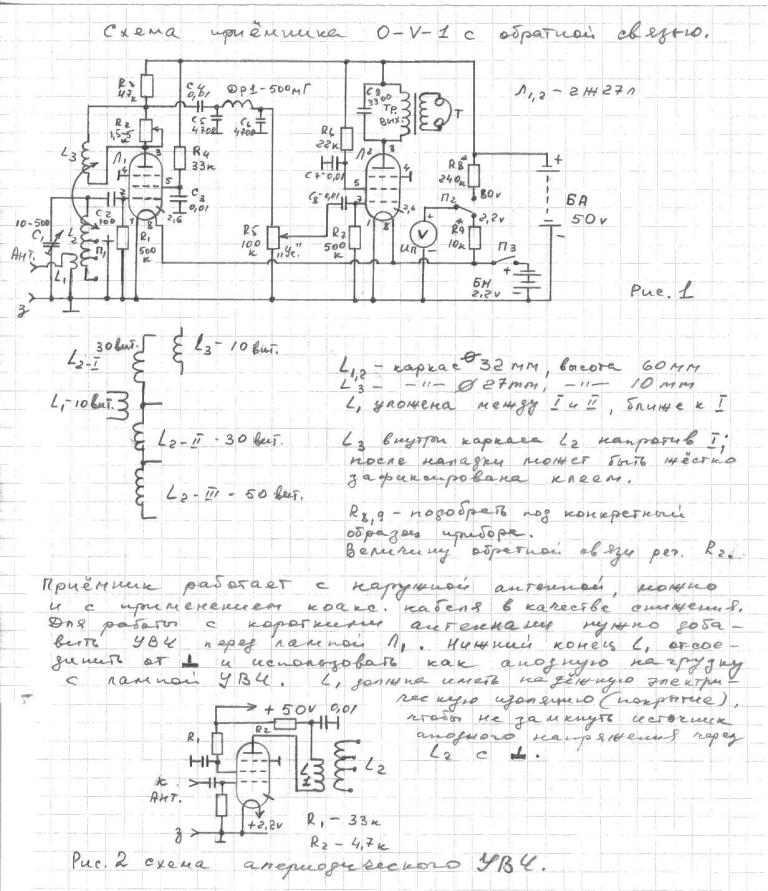 Схема приёмника О-V-1 с обратной связью.
Л1,2 - 2Ж27Л
R3
47к
C4
0,01
Др1-500мГ
C5
4700
C6
4700
R2
1,5-5к
Л1
R4
33к
C3
0,01
L3
10-500
C1
C2
100
L2
П1
R1
500
к
2,6
Ант.
L1
З
C9
3300
ТР.
ВЫХ.
Т
R6
22к
C7-0,01
C8-0,01
Л2
2,6
R5
100
к
"Ус."
R7
500
к
V
ИП
R8*
240к
80v
П2
2,2v
R9*
10к
П3
БН
2,2v
БА
50v
Рис. 1
L2-I
30вит.
L3-10вит.
L1-10вит.
L2-II - 30 вит.
L2-III - 50 вит.
L1,2 - каркас Ø 32мм, высота 60мм
L3 - -"- Ø 27mm, -"- 10 мм
L1 уложена между I и II, ближе к I
L3 внутри каркаса L2 напротив I;
после наладки может быть жёстко
зафиксирована клеем.
R8,9 - подобрать под конкретный
образец прибора.
Величину обратной связи рег. R2.
Приёмник работает с наружной антенной, можно
и с применением коакс. кабеля в качестве снижения.
Для работы с короткими антеннами нужно доба-
вить УВЧ перед лампой Л1. Нижний конец L1 отсое-
динить от ⊥ и использовать как анодную нагрузку
с лампой УВЧ. L1 должна иметь надёжную электри-
ческую изоляцию (покрытие),
чтобы не замкнуть источник
анодного напряжения через
L2 с ⊥.
+50v
0,01
R1
R2
L1
L2
Ант.
З
+2,2v
R1 - 33к
R2 - 4,7к
Рис. 2 схема апериодического УВЧ.